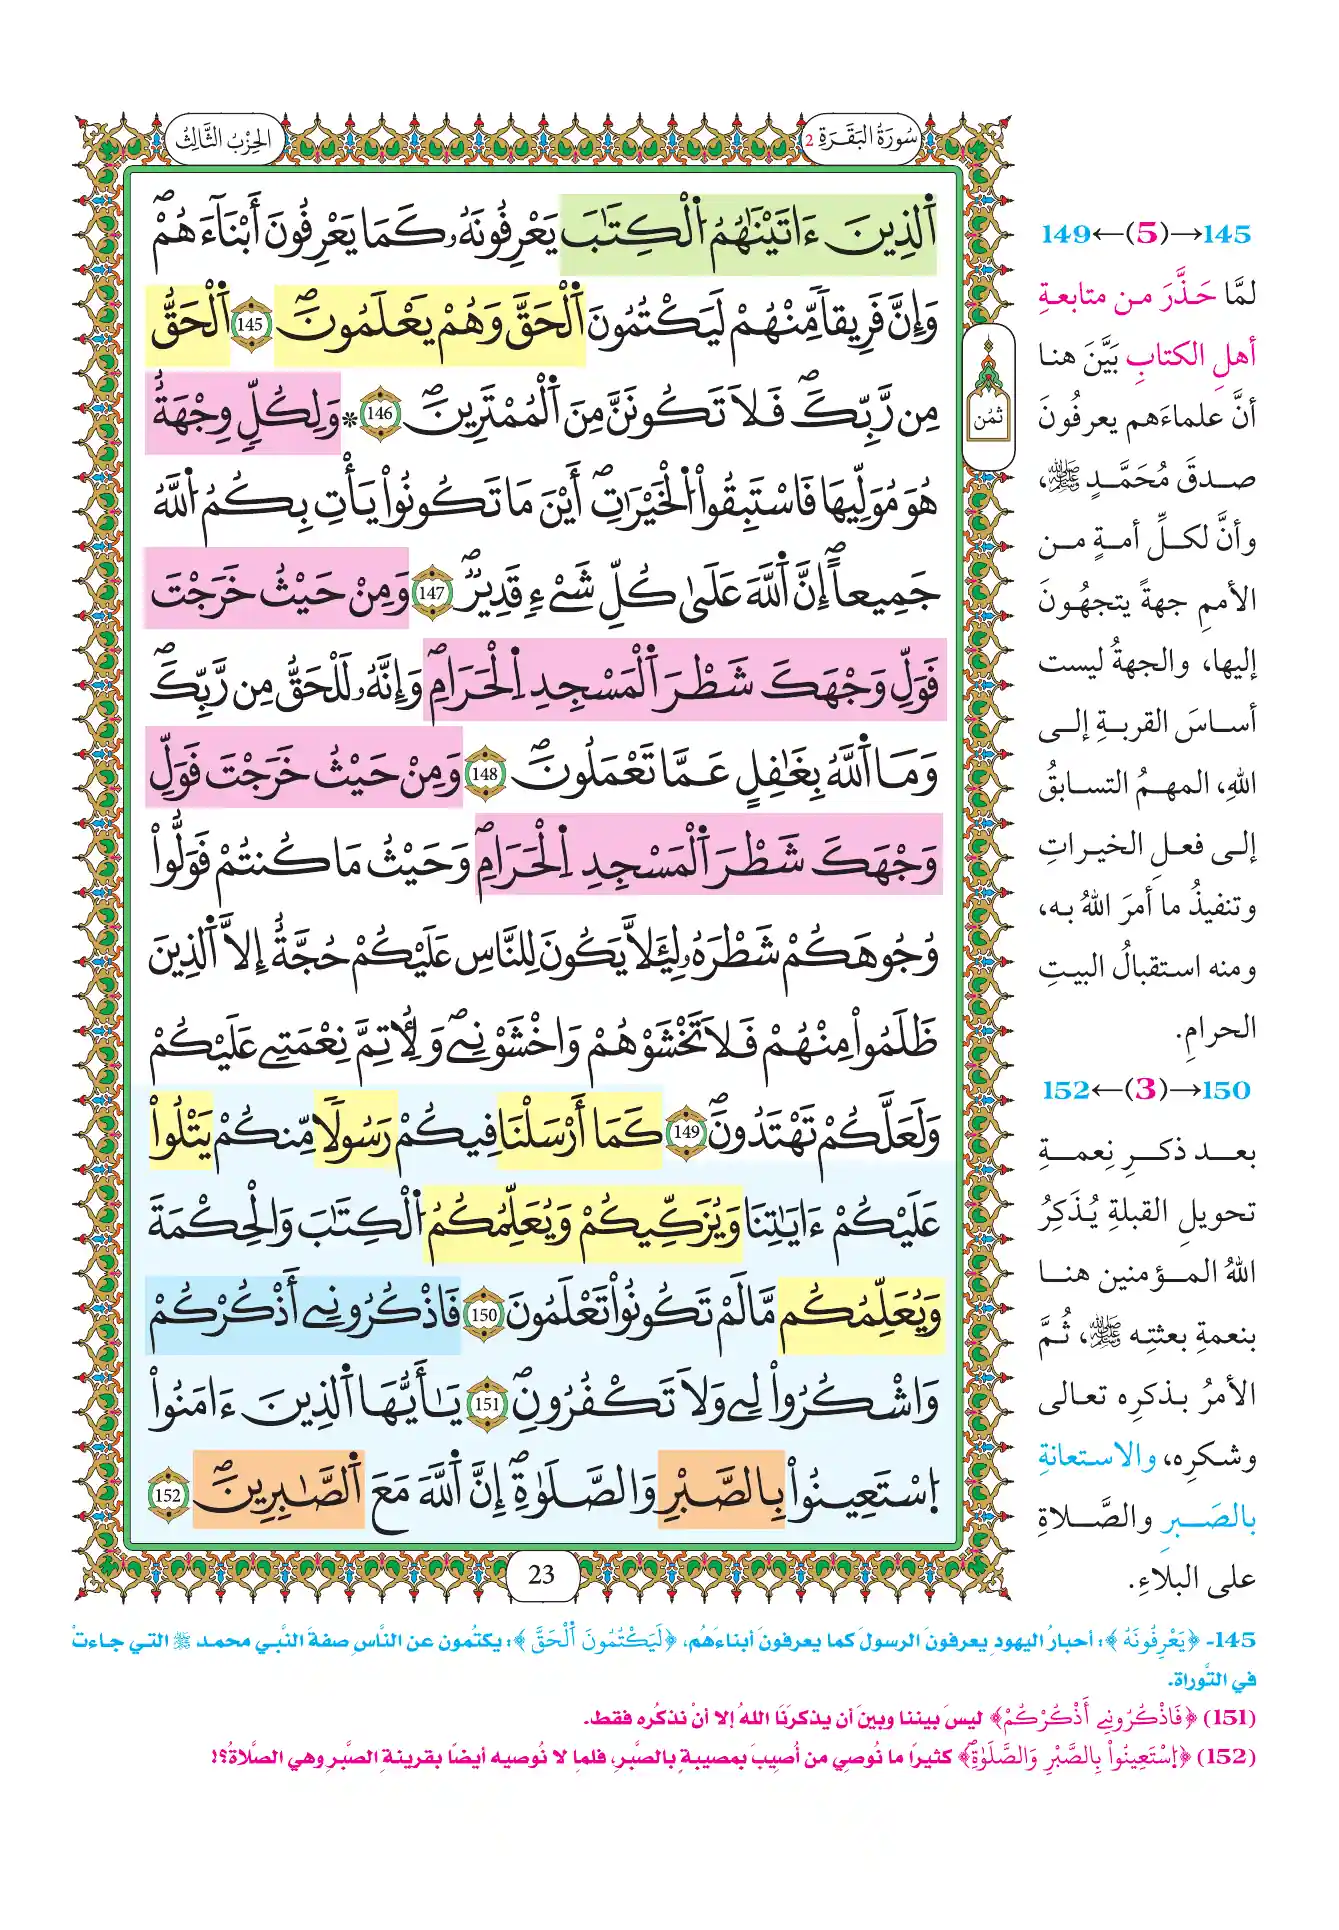 سُورَةُ البَقَرَةِ 2
الحِزْبُ الثَّالِثُ
اَ۬لذِينَ ءَاتَيْنَٰهُمُ اُ۬لْكِتَٰبَ يَعْرِفُونَهُۥ كَمَا يَعْرِفُونَ أَبْنَآءَهُمْۖ
وَإِنَّ فَرِيقاٗ مِّنْهُمْ لَيَكْتُمُونَ اَ۬لْحَقَّ وَهُمْ يَعْلَمُونَۖ 145 اَ۬لْحَقُّ
مِن رَّبِّكَۖ فَلَا تَكُونَنَّ مِنَ اَ۬لْمُمْتَرِينَۖ 146 * وَلِكُلّٖ وِجْهَةٌ
هُوَ مُوَلِّيهَا فَاسْتَبِقُواْ اُ۬لْخَيْرَٰتِۖ أَيْنَ مَا تَكُونُواْ يَأْتِ بِكُمُ اُ۬للَّهُ
جَمِيعاًۖ إِنَّ اَ۬للَّهَ عَلَىٰ كُلِّ شَےْءٖ قَدِيرٞۖ 147 وَمِنْ حَيْثُ خَرَجْتَ
فَوَلِّ وَجْهَكَ شَطْرَ اَ۬لْمَسْجِدِ اِ۬لْحَرَامِۖ وَإِنَّهُۥ لَلْحَقُّ مِن رَّبِّكَۖ
وَمَا اَ۬للَّهُ بِغَٰفِلٍ عَمَّا تَعْمَلُونَۖ 148 وَمِنْ حَيْثُ خَرَجْتَ فَوَلِّ
وَجْهَكَ شَطْرَ اَ۬لْمَسْجِدِ اِ۬لْحَرَامِۖ وَحَيْثُ مَا كُنتُمْ فَوَلُّواْ
وُجُوهَكُمْ شَطْرَهُۥ لِيَ۬لَّا يَكُونَ لِلنَّاسِ عَلَيْكُمْ حُجَّةٌ إِلَّا اَ۬لذِينَ
ظَلَمُواْ مِنْهُمْ فَلَا تَخْشَوْهُمْ وَاخْشَوْنِےۖ وَلِأُتِمَّ نِعْمَتِے عَلَيْكُمْ
وَلَعَلَّكُمْ تَهْتَدُونَۖ 149 كَمَا أَرْسَلْنَا فِيكُمْ رَسُولاٗ مِّنكُمْ يَتْلُواْ
عَلَيْكُمْ ءَايَٰتِنَا وَيُزَكِّيكُمْ وَيُعَلِّمُكُمُ اُ۬لْكِتَٰبَ وَالْحِكْمَةَ
وَيُعَلِّمُكُم مَّا لَمْ تَكُونُواْ تَعْلَمُونَ 150 فَاذْكُرُونِے أَذْكُرْكُمْ
وَاشْكُرُواْ لِے وَلَا تَكْفُرُونِۖ 151 يَٰأَيُّهَا اَ۬لذِينَ ءَامَنُواْ
اُ۪سْتَعِينُواْ بِالصَّبْرِ وَالصَّلَوٰةِۖ إِنَّ اَ۬للَّهَ مَعَ اَ۬لصَّٰبِرِينَۖ 152
ثمُن
23
145→(5)←149
لمَّا حَذَّرَ من متابعةِ
أهلِ الكتابِ بَيَّنَ هنا
أنَّ علماءَهم يعرفُونَ
صدقَ مُحَمَّدٍ ﷺ،
وأنَّ لكلِّ أمةٍ من
الأممِ جهةً يتجهُونَ
إليها، والجهةُ ليست
أساسَ القربةِ إلى
اللهِ، المهمُ التسابقُ
إلى فعلِ الخيراتِ
وتنفيذُ ما أمرَ اللهُ به،
ومنه استقبالُ البيتِ
الحرامِ.
150→(3)←152
بعد ذكرِ نِعمةِ
تحويلِ القبلةِ يُذَكِرُ
اللهُ المؤمنين هنا
بنعمةِ بعثتِه ﷺ، ثُمَّ
الأمرُ بذكرِه تعالى
وشكرِه، والاستعانةِ
بالصَبرِ والصَّلاةِ
على البلاءِ.
145- ﴿يَعْرِفُونَهُ﴾: أحبارُ اليهودِ يعرفونَ الرسولَ كما يعرفونَ أبناءَهُم، ﴿لَيَكْتُمُونَ اَ۬لْحَقَّ﴾: يكتُمون عن النَّاسِ صفةَ النَّبي محمد ﷺ التي جاءتْ
في التَّوراة.
(151) ﴿فَاذْكُرُونِے أَذْكُرْكُمْ﴾ ليسَ بيننا وبينَ أن يذكرَنا اللهُ إلا أنْ نذكُره فقط.
(152) ﴿اُ۪سْتَعِينُواْ بِالصَّبْرِ وَالصَّلَوٰةِۖ﴾ كثيرًا ما نُوصِي من أُصِيبَ بمصيبةٍ بالصَّبرِ، فلما لا نُوصيه أيضًا بقرينةِ الصَّبرِ وهي الصَّلاةُ؟!